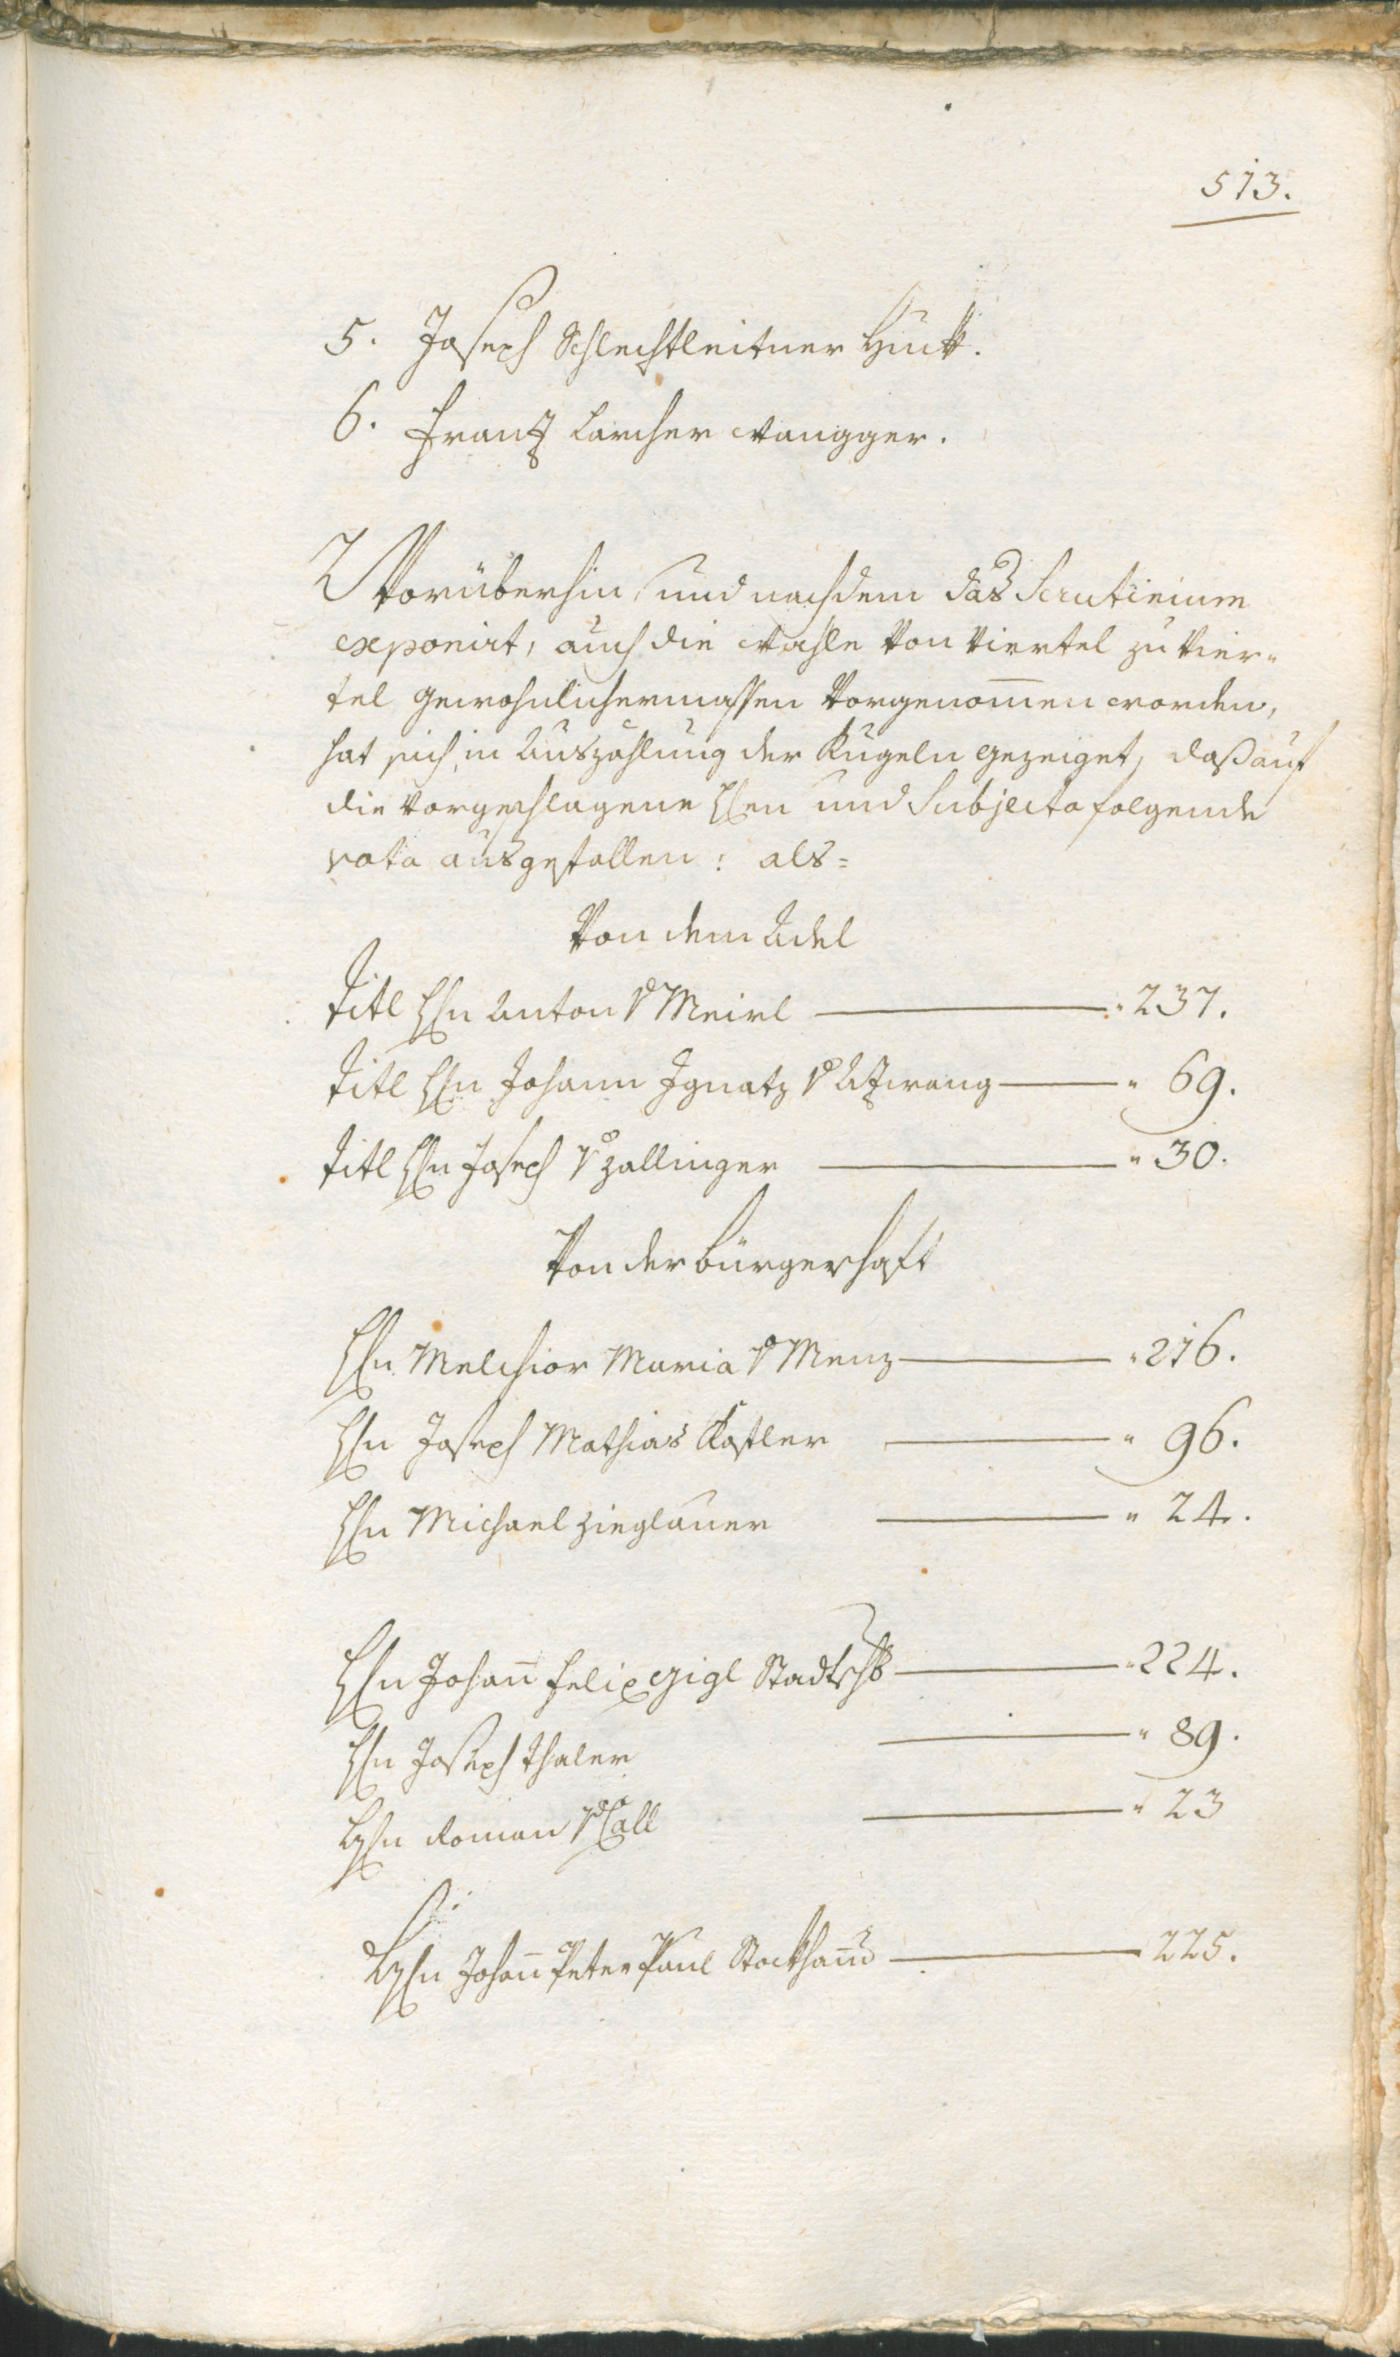 513.
5. Joseph Schlechtleitner
6. Frantz Larcher Wangger.
Worüberhin, und nachdem das Scrutinium
exponirt, auch die Wahle von Viertel zu Vier=
tel gewohnlichermassen vorgenom̄en worden,
hat sich in Auszahlung der Kugeln gezeiget, daß auf
die vorgeschlagene Hen und Subjecta folgende
vota ausgefallen: als=
Von dem Adel
Titl Hn Anton v Meirl 237.
Titl Hn Johann Ignatz v Atzwang 69.
Titl Hn Joseph v Zallinger 30.
Von der Bürgerschaft
Hn Melchior Maria v Menz 216.
Hn Joseph Mathias Kastler 96.
Hn Michael Zieglauer 24.
Hn Johan̄ Felix Gigl Stadtschb 224.
Hn Joseph Thaler 89.
Hn Roman v Call 23
Hn Johan̄ Peter Paul 225.